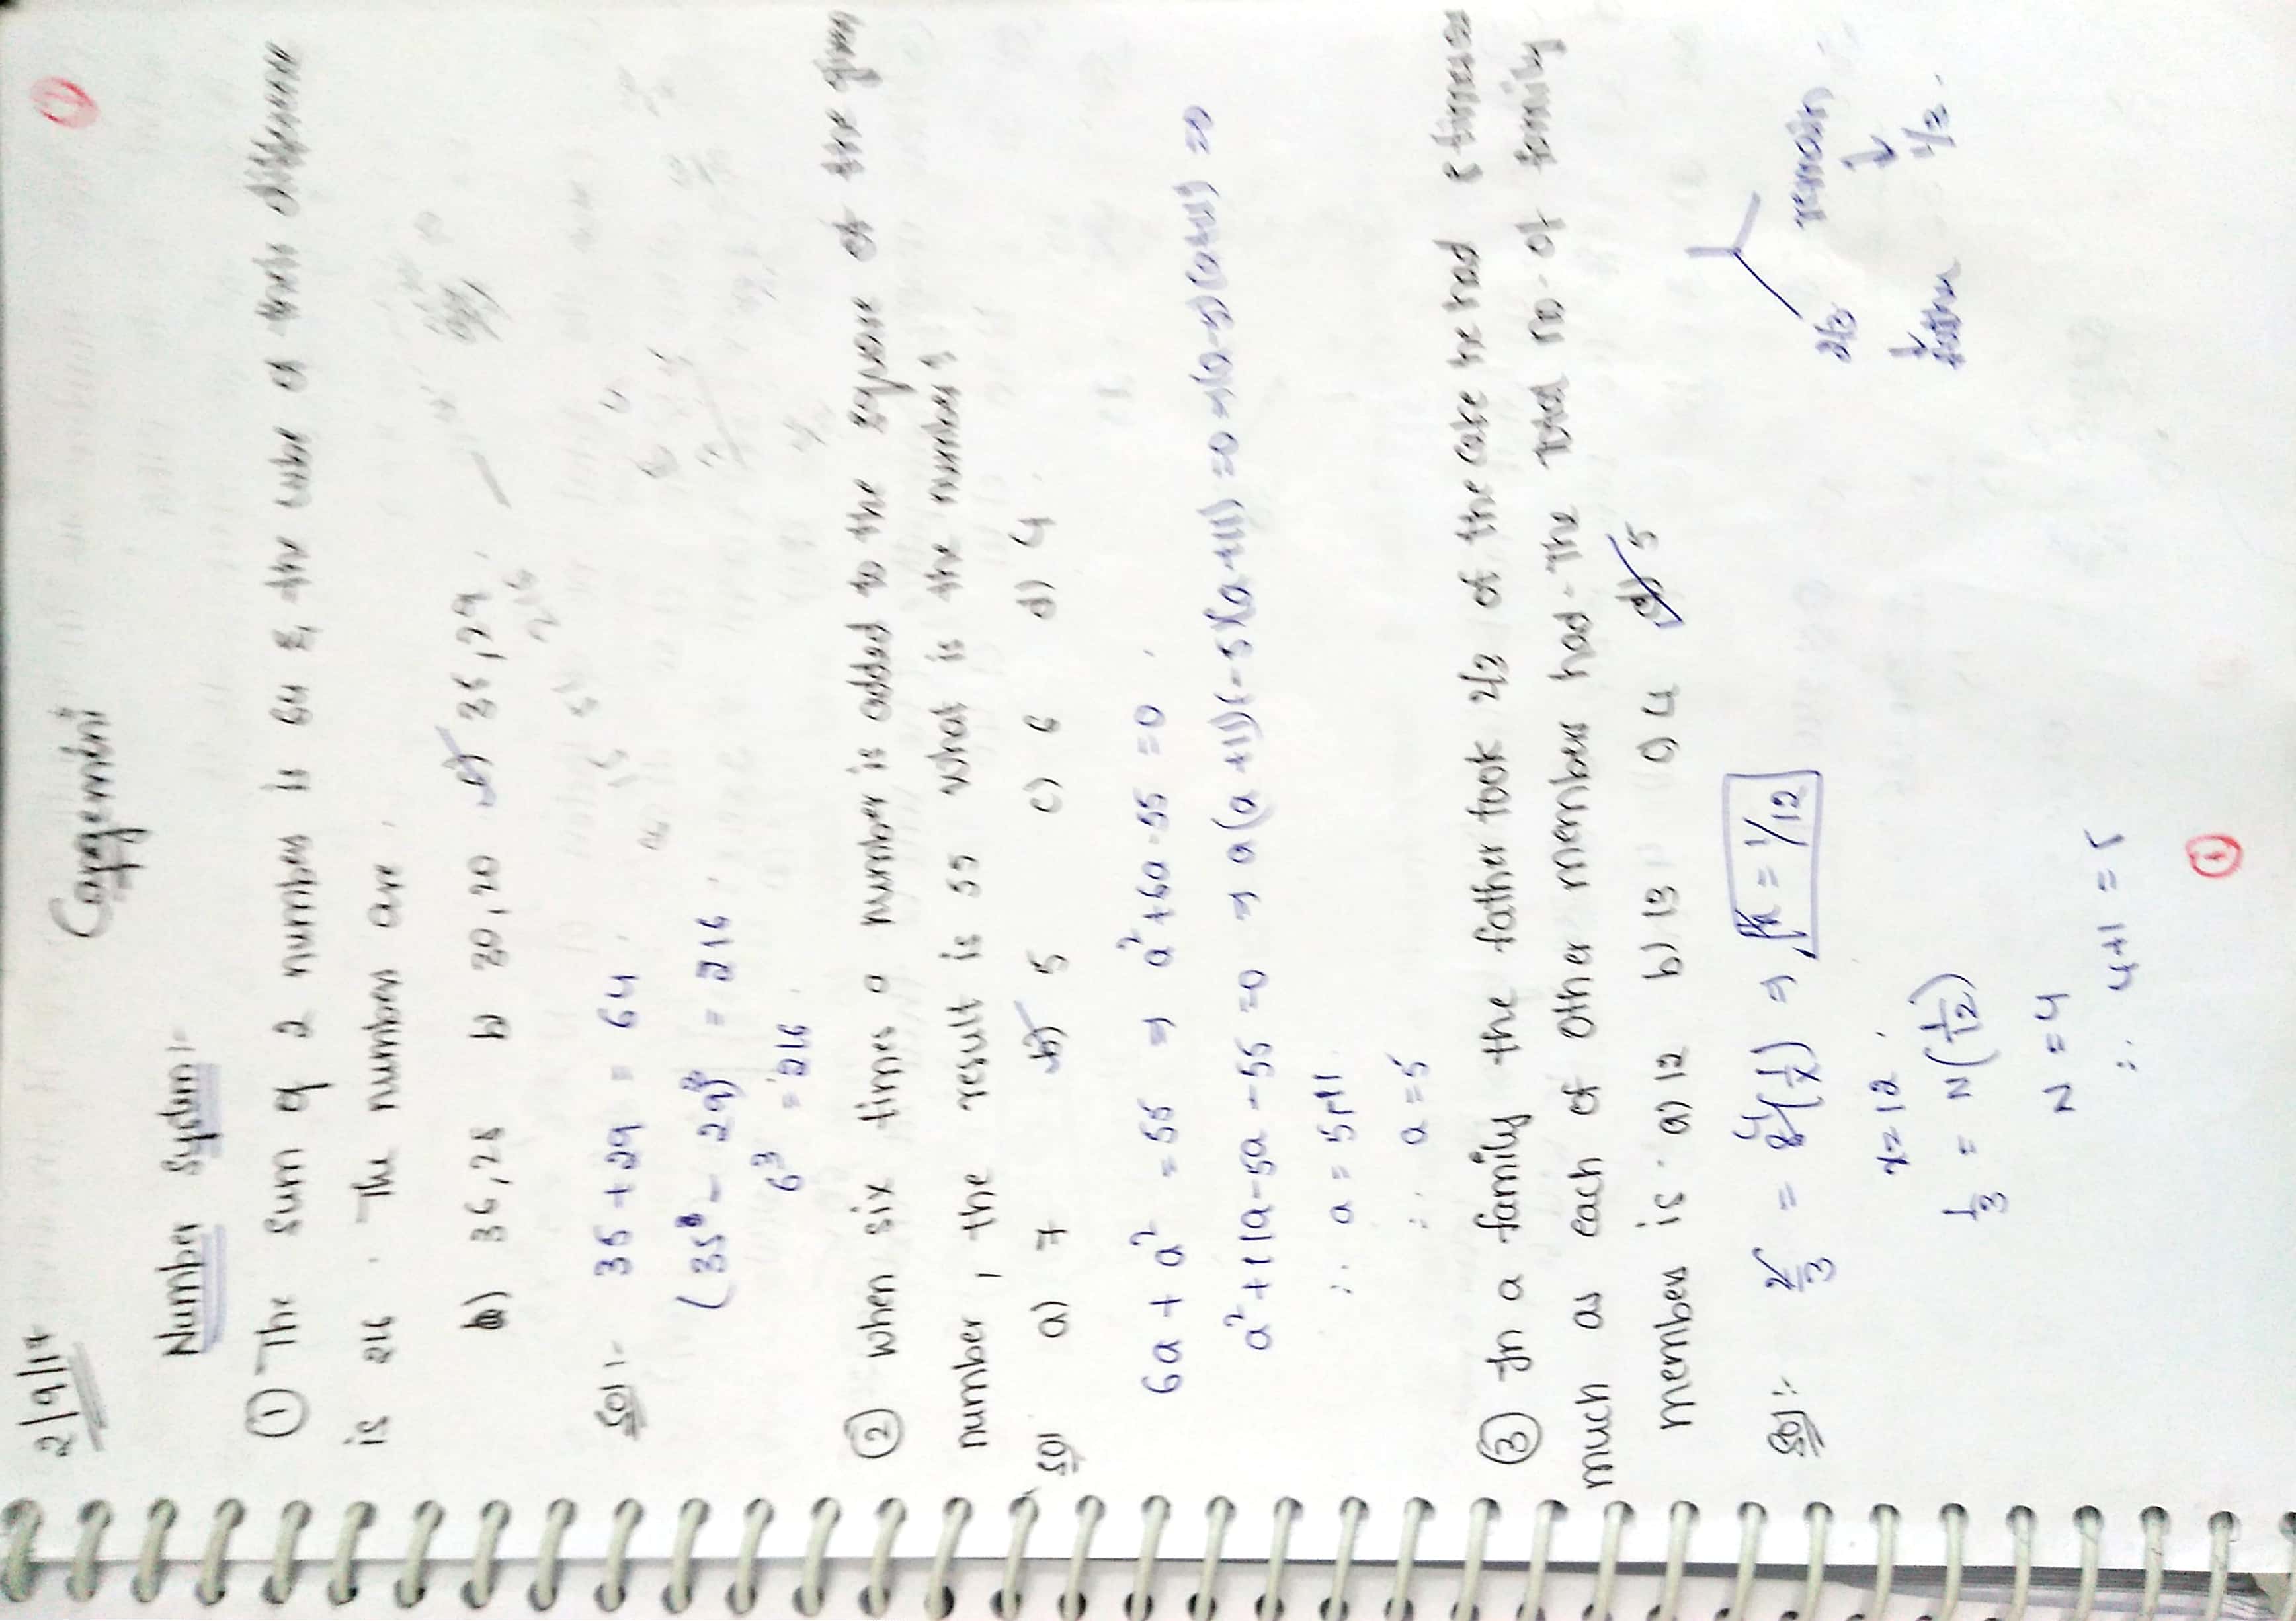 2/9/17
Capgemini
1
Number System:-
① The sum of 2 numbers is 64 & the cube of their difference
is 216. The numbers are.
a) 36,28 b) 30,20 c) 35,29.
216
Sol:- 35+29 = 64
(35³ - 29)³ = 216
6³ = 216
② when six times a number is added to the square of the given
number, the result is 55 what is the number?
Sol a) 7 b) 5 c) 6 d) 4
6a + a² = 55 ⇒ a²+6a-55 = 0
a²+11a-5a-55=0 ⇒ a(a+11)(-5)(a+11)=0 ⇒ (a-5)(a+11) =0
∴ a = 5,-11
∴ a=5
③ In a family the father took 2/3 of the cake he had 8 times as
much as each of other members had. The Total no. of family
members is. a) 12 b) 13 c) 4 d) 5
Sol:- 2/3 = 8 4 (1/x) ⇒ x = 1/12
2/3 remain
↓ ↓
father 1/3.
x=12.
1/3 = N(1/12)
N = 4
∴ 4+1 = 5
1